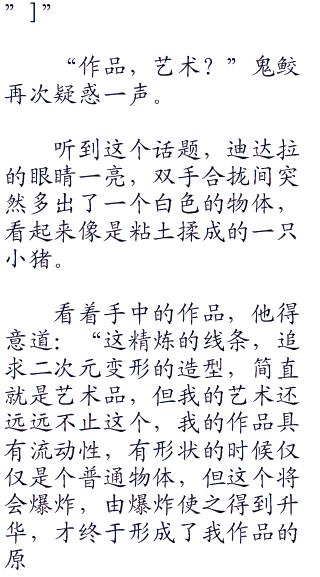 ”]”
“作品，艺术？”鬼鲛
再次疑惑一声。
听到这个话题，迪达拉
的眼睛一亮，双手合拢间突
然多出了一个白色的物体，
看起来像是粘土揉成的一只
小猪。
看着手中的作品，他得
意道：“这精炼的线条，追
求二次元变形的造型，简直
就是艺术品，但我的艺术还
远远不止这个，我的作品具
有流动性，有形状的时候仅
仅是个普通物体，但这个将
会爆炸，由爆炸使之得到升
华，才终于形成了我作品的
原